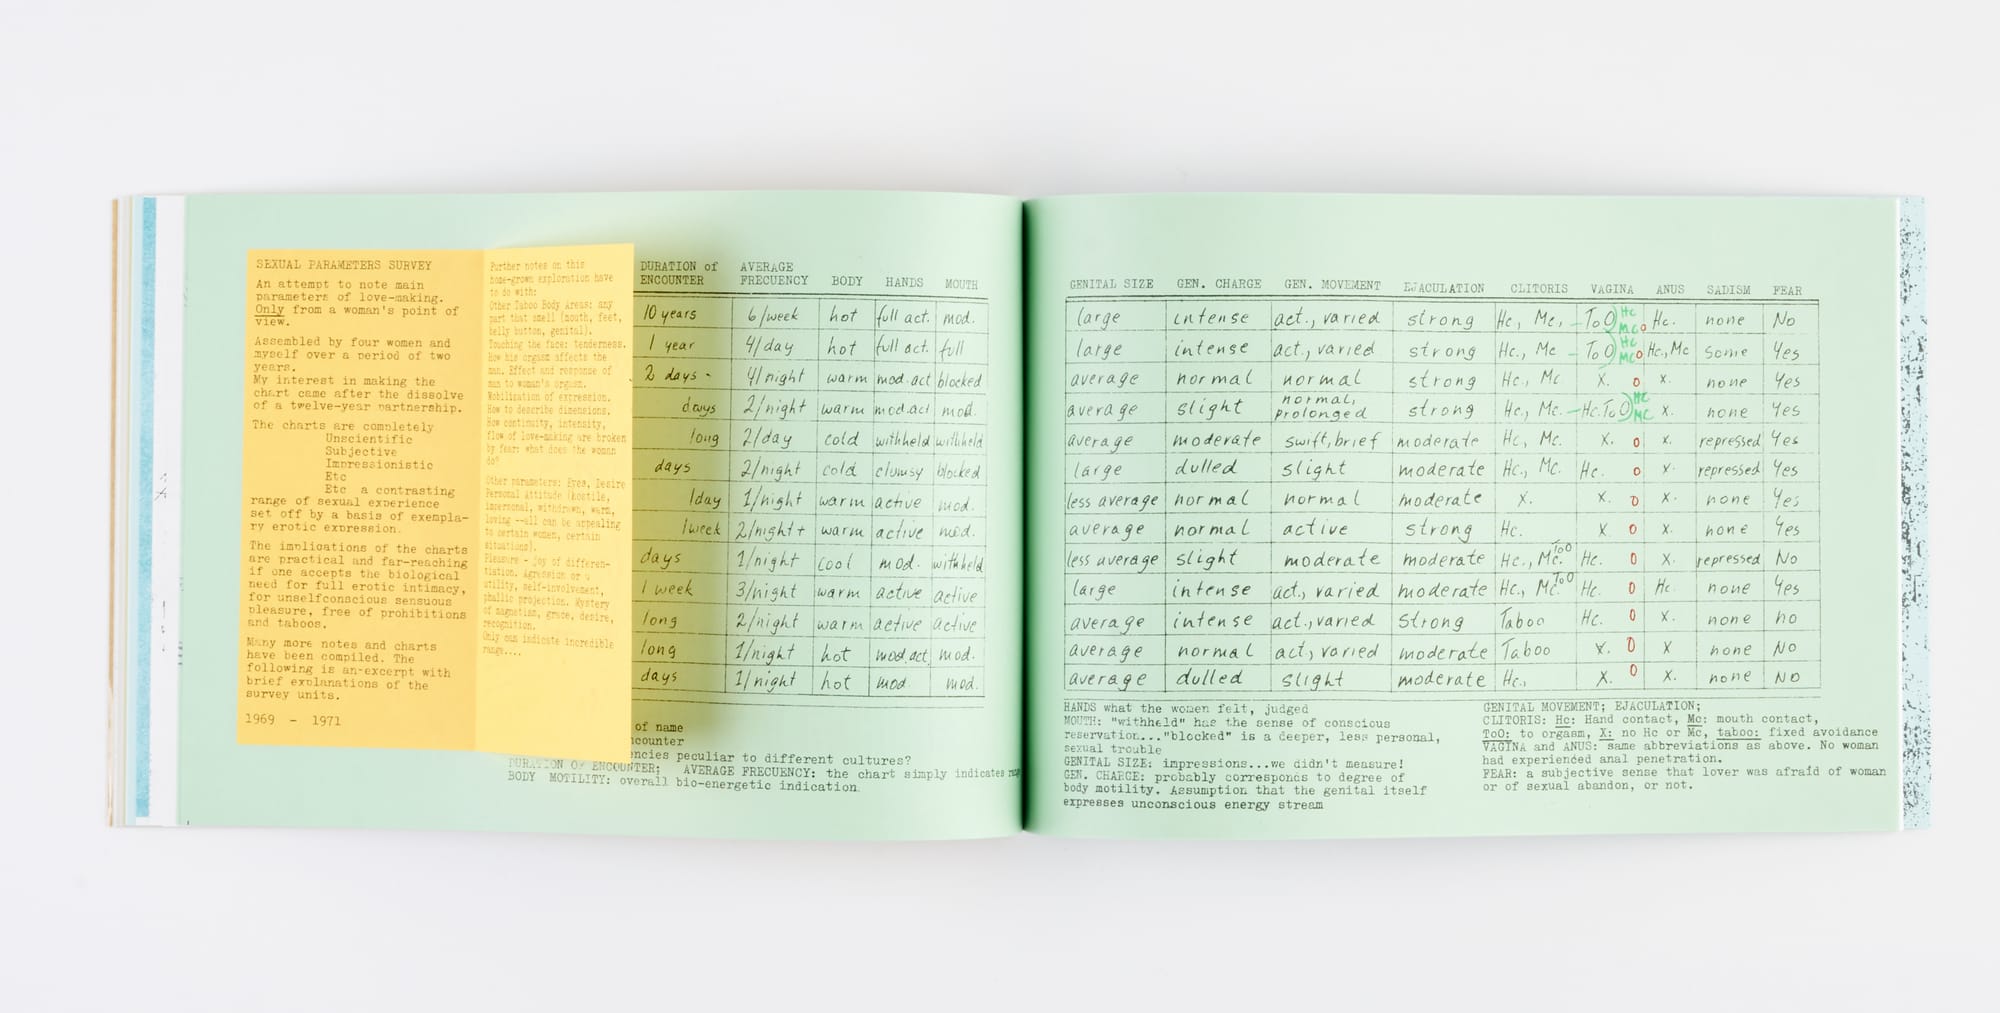 SEXUAL PARAMETERS SURVEY
An attempt to note main
parameters of love-making.
Only from a woman's point of
view.
Assembled by four women and
myself over a period of two
years.
My interest in making the
chart came after the dissolve
of a twelve-year partnership.
The charts are completely
Unscientific
Subjective
Impressionistic
Etc
Etc a contrasting
range of sexual experience
set off by a basis of exempla-
ry erotic expression.
The implications of the charts
are practical and far-reaching
if one accepts the biological
need for full erotic intimacy,
for unselfconscious sensuous
pleasure, free of prohibitions
and taboos.
Many more notes and charts
have been compiled. The
following is an excerpt with
brief explanations of the
survey units.
1969 - 1971
Further notes on this
home-grown exploration have
to do with:
Other Taboo Body Areas: any
part that smell (mouth, feet,
belly button, genital).
Touching the face: tenderness.
How his orgasm affects the
man. Effect and response of
man to woman's orgasm.
Mobilization of expression.
How to describe dimensions.
How continuity, intensity,
flow of love-making are broken
by fear: what does the woman
do?
Other parameters: Eyes, Desire
Personal Attitude (hostile,
impersonal, withdrawn, warm,
loving --all can be appealing
to certain women, certain
situations).
Pleasure - joy of differen-
tiation. Agression or
utility, self-involvement,
phallic projection. Mystery
of magnetism, grace, desire,
recognition.
Only can indicate incredible
range....
DURATION of ENCOUNTER AVERAGE FRECUENCY BODY HANDS MOUTH
10 years 6/week hot full act. mod.
1 year 4/day hot full act. full
2 days - 4/night warm mod. act blocked
days 2/night warm mod. act mod.
long 2/day cold withheld withheld
days 2/night cold clumsy blocked
1 day 1/night warm active mod.
1 week 2/night+ warm active mod.
days 1/night cool mod. withheld
1 week 3/night warm active active
long 2/night warm active active
long 1/night hot mod. act mod.
days 1/night hot mod. mod.
of name
ncounter
encies peculiar to different cultures?
DURATION OF ENCOUNTER; AVERAGE FRECUENCY: the chart simply indicates
BODY MOTILITY: overall bio-energetic indication.
GENITAL SIZE GEN. CHARGE GEN. MOVEMENT EJACULATION CLITORIS VAGINA ANUS SADISM FEAR
large intense act., varied strong Hc, Mc, - ToO Hc Mc o Hc. none No
large intense act., varied strong Hc., Mc - ToO Hc Mc o Hc., Mc some Yes
average normal normal strong Hc., Mc X. o x. none Yes
average slight normal, prolonged strong Hc., Mc. - Hc. ToO Hc Mc x. none Yes
average moderate swift, brief moderate Hc, Mc. X. o x. repressed Yes
large dulled slight moderate Hc., Mc. Hc. o x. repressed Yes
less average normal normal moderate X. X. o x. none Yes
average normal active strong Hc. X o x. none Yes
less average slight moderate moderate Hc., Mc. ToO Hc. o x. repressed No
large intense act., varied moderate Hc., Mc. ToO Hc. o Hc. none Yes
average intense act., varied strong Taboo Hc. o x. none no
average normal act, varied moderate Taboo x. o x none No
average dulled slight moderate Hc, X. o x. none NO
HANDS what the women felt, judged
MOUTH: "withheld" has the sense of conscious
reservation..."blocked" is a deeper, less personal,
sexual trouble
GENITAL SIZE: impressions...we didn't measure!
GEN. CHARGE: probably corresponds to degree of
body motility. Assumption that the genital itself
expresses unconscious energy stream
GENITAL MOVEMENT; EJACULATION;
CLITORIS: Hc: Hand contact, Mc: mouth contact,
ToO: to orgasm, X: no Hc or Mc, taboo: fixed avoidance
VAGINA and ANUS: same abbreviations as above. No woman
had experienced anal penetration.
FEAR: a subjective sense that lover was afraid of woman
or of sexual abandon, or not.